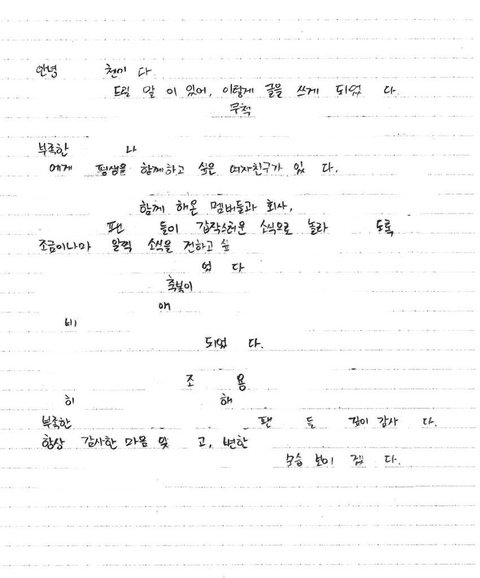 안녕 천기 다
드릴 말 이 있어, 이렇게 글을 쓰게 되었 다.
무척
부족한 나
에게 평생을 함께하고 싶은 여자친구가 있 다.
함께 해온 멤버들과 회사,
팬 들이 갑작스러운 소식으로 놀라 도록
조금이나마 일찍 소식을 전하고 싶
었 다
축복이
애
비
되었 다.
조 용
히 해
부족한 팬 들 깊이 감사 다.
항상 감사한 마음 잊 고, 변한
모습 보이 겠 다.